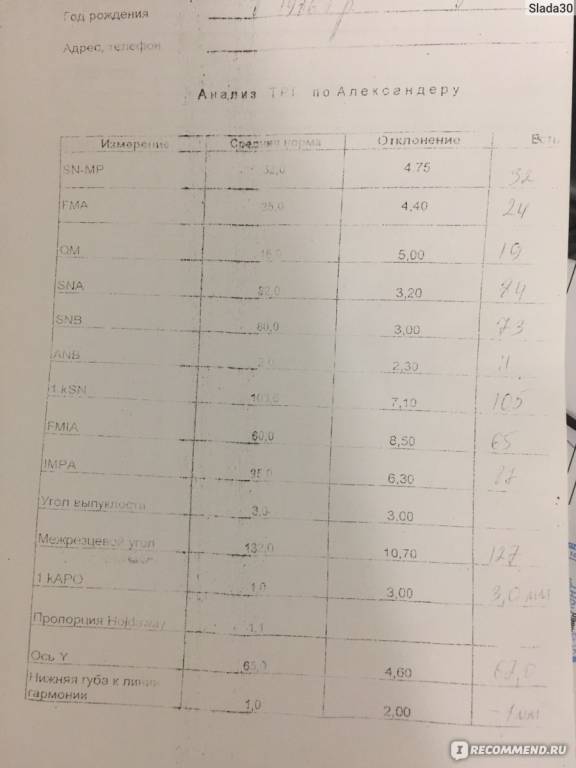 Slada30
Год рождения 1976 г р
Адрес, телефон
Анализ ТРГ по Александеру
Измерение Средняя норма Отклонение Есть
SN-MP 32,0 4.75 32
FMA 25,0 4,40 24
OM 5,00 19
SNA 82,0 3,20 84
SNB 80,0 3,00 73
ANB 2,30 11
1 кSN 7,10 105
FMIA 60,0 8,50 65
IMPA 95,0 6,30
Угол выпуклости 3,0 3,00
Межрезцевой угол 132,0 10,70 127
1 кАРО 1,0 3,00 3,0 мм
Пропорция Holdaway 1,1
Ось Y 4,60 67,0
Нижняя губа к линии
гармонии 1,0 2,00 -1 мм
IRECOMMEND.RU